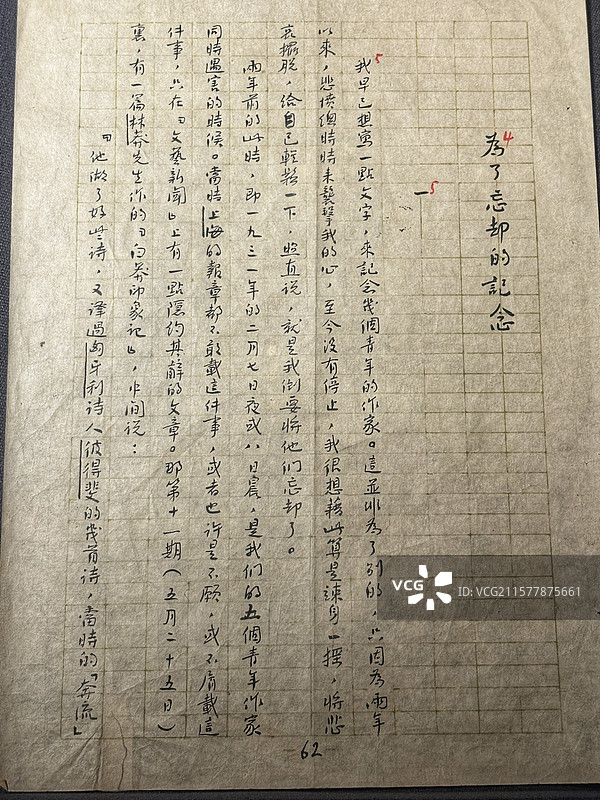 為了忘却的記念
4
一
5
5
我早已想寫一點文字，來記念幾個青年的作家。這並非為了別的，只因為兩年
以來，悲憤總時時來襲擊我的心，至今沒有停止，我很想藉此算是竦身一搖，將悲
哀擺脫，給自己輕鬆一下，照直說，就是我倒要將他们忘却了。
兩年前的此時，即一九三一年的二月七日夜或八日晨，是我们的五個青年作家
同時遇害的時候。當時上海的報章都不敢載這件事，或者也許是不願，或不屑載這
件事，只在「文藝新聞」上有一點隱約其辭的文章。那第十一期（五月二十五日）
裏，有一篇林莽先生作的「白莽印象记」，中间说：
「他做了好些诗，又译過匈牙利诗人彼得斐的幾首诗，當時的「奔流」
62
VCG
ID: VCG211577875661